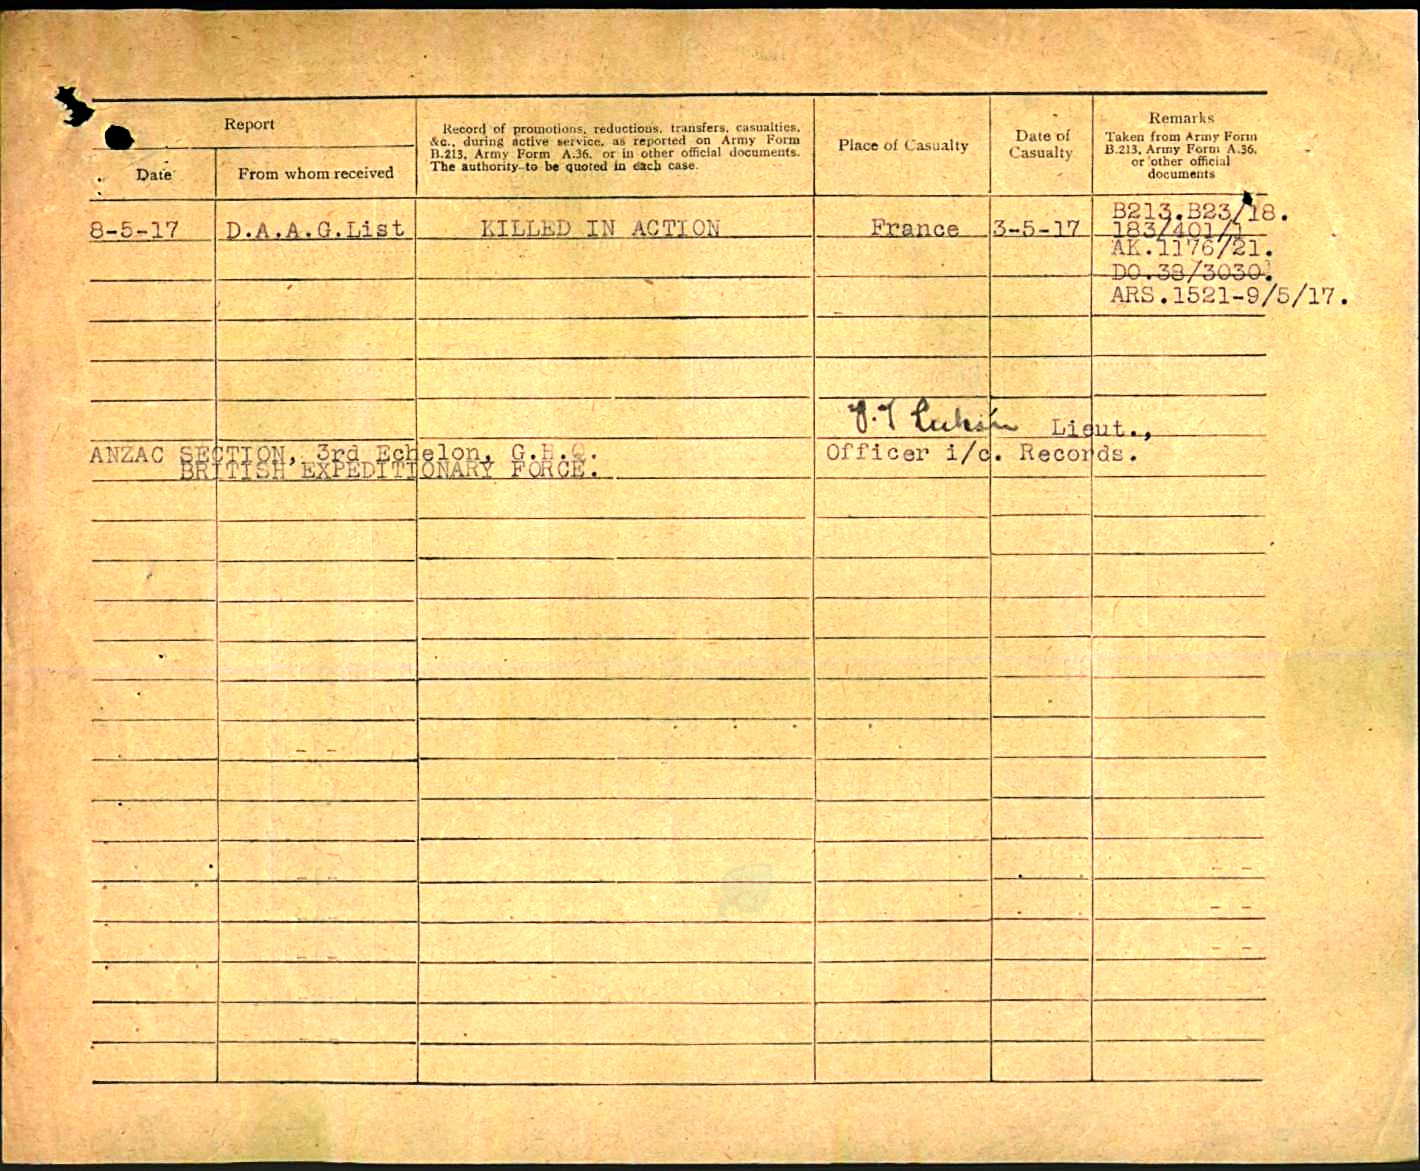 Report
Date
From whom received
Record of promotions, reductions, transfers, casualties,
&c., during active service, as reported on Army Form
B.213, Army Form A.36, or in other official documents.
The authority to be quoted in each case.
Place of Casualty
Date of
Casualty
Remarks
Taken from Army Form
B.213, Army Form A.36,
or other official
documents
8-5-17 D.A.A.G.List KILLED IN ACTION France 3-5-17 B213.B23/18.
183/401/1
AK.1176/21.
DO.38/3030.
ARS.1521-9/5/17.
Lieut.,
Officer i/c. Records.
ANZAC SECTION, 3rd Echelon, G.H.Q.
BRITISH EXPEDITIONARY FORCE.